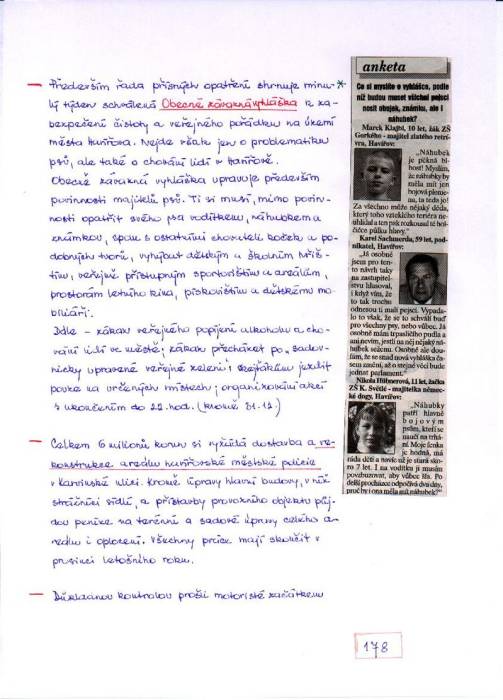 — Především řada přísných opatření shrnuje minu-*
lý týden schválená Obecně závazná vyhláška k za-
bezpečení čistoty a veřejného pořádku na území
města Havířova. Nejde však jen o problematiku
psů, ale také o chování lidí v Havířově.
Obecně závazná vyhláška upravuje především
povinnosti majitelů psů. Ti si musí, mimo povin-
nosti opatřit svého psa vodítkem, náhubkem a
známkou, spolu s ostatními chovateli koček a po-
dobných tvorů, vyhýbat dětským a školním hřiš-
tím, veřejně přístupným sportovištím a areálům,
prostorám letního kina, pískovištím a dětskému mo-
biliáři.
Dále – zákaz veřejného popíjení alkoholu a cho-
vání lidí ve městě; zákaz přecházet po „sadov-
nicky upravené veřejné zeleni"; jezdit
pouze na určených místech; organizování akcí
s ukončením do 22.hod. (kromě 31.12.)
— Celkem 6 milionů korun si vyžádá dostavba a re-
konstrukce areálu havířovské městské policie
v Karvinské ulici. Kromě úpravy hlavní budovy, v níž
strážníci sídlí, a přístavby provozního objektu půj-
dou peníze na terénní a sadové úpravy celého a-
reálu i oplocení. Všechny práce mají skončit v
prosinci letošního roku.
— Důkladnou kontrolou prošli motoristé začátkem
178
anketa
Co si myslíte o vyhlášce, podle
níž budou muset všichni pejsci
nosit obojek, známku, ale i
náhubek?
Marek Klajbl, 10 let, žák ZŠ
Gorkého - majitel zlatého retrí-
vra, Havířov:
„Náhubek
je pěkná bl-
bost! Myslím,
že náhubky by
měla mít jen
bojová pleme-
na, ta teda jo!
Za všechno může nějaký děda,
který toho vzteklého teriéra ne-
uhlídal a ten pak rozkousal té hol-
čičce půlku hlavy."
Karel Sachmerda, 59 let, pod-
nikatel, Havířov:
„Já osobně
jsem pro ten-
to návrh taky
na zastupitel-
stvu hlasoval,
i když vím, že
to tak trochu
odnesou ti malí pejsci. Vypada-
lo to však, že se to schválí buď
pro všechny psy, nebo vůbec. Já
osobně mám trpasličího pudla a
ani nevím, jestli na něj nějaký ná-
hubek seženu. Osobně ale dou-
fám, že se snad nová vyhláška ča-
sem změní, až o stejné věci bude
jednat parlament."
Nikola Hübnerová, 11 let, žačka
ZŠ K. Světlé - majitelka němec-
ké dogy, Havířov:
„Náhubky
patří hlavně
bojovým
psům, kteří se
naučí na trhá-
ní. Moje fenka
je hodná, má
ráda děti a navíc už je stará sko-
ro 7 let. I na vodítku ji musím
povzbuzovat, aby vůbec šla. Po
delší procházce odpočívá dva dny,
proč by i ona měla mít náhubek?"